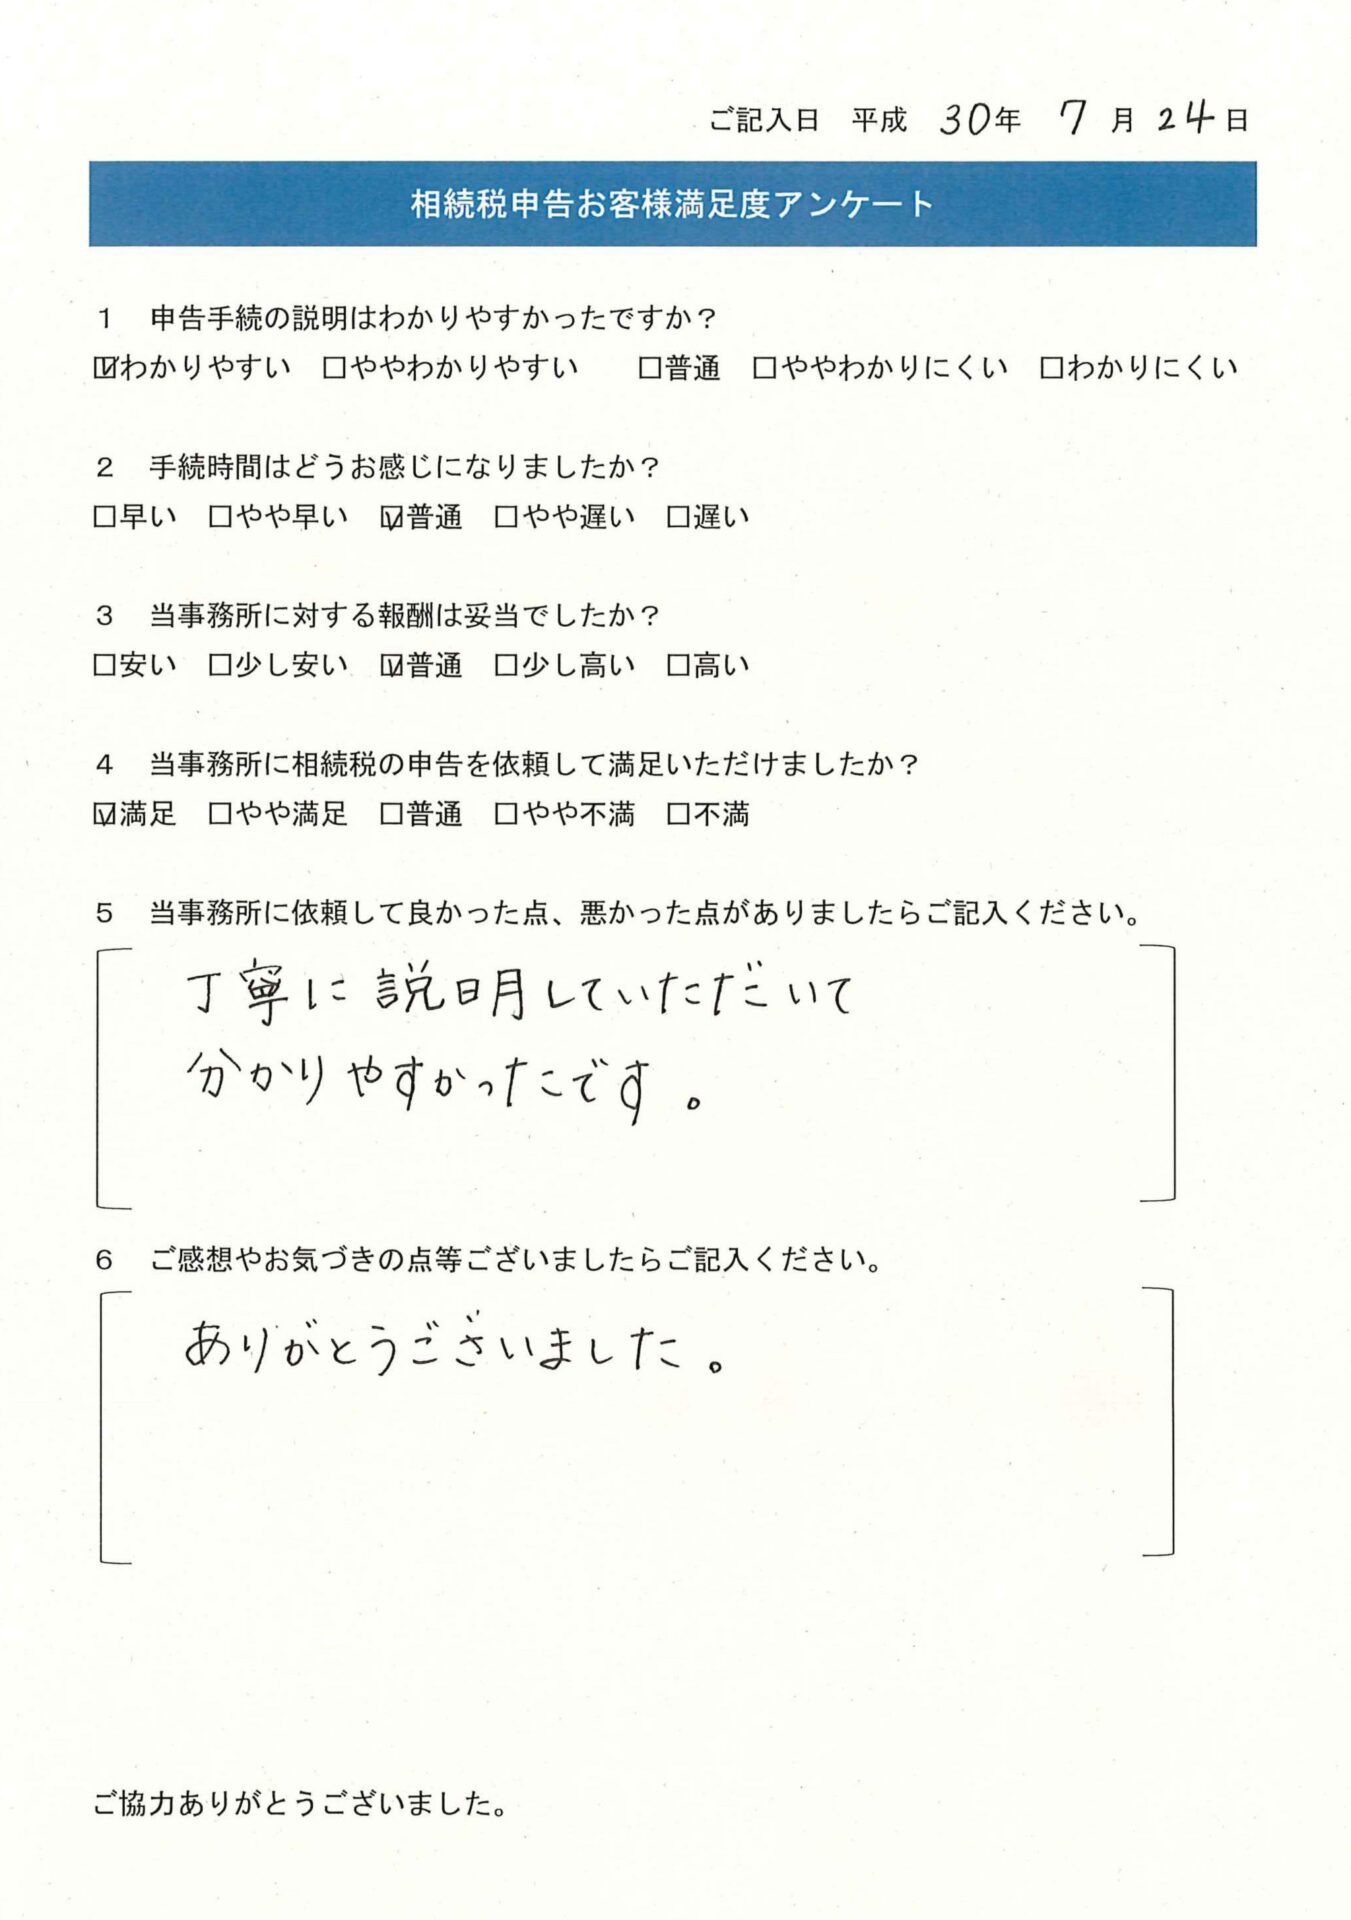 ご記入日 平成 30年 7月 24日
相続税申告お客様満足度アンケート
1 申告手続の説明はわかりやすかったですか？
☑わかりやすい □ややわかりやすい □普通 □ややわかりにくい □わかりにくい
2 手続時間はどうお感じになりましたか？
□早い □やや早い ☑普通 □やや遅い □遅い
3 当事務所に対する報酬は妥当でしたか？
□安い □少し安い ☑普通 □少し高い □高い
4 当事務所に相続税の申告を依頼して満足いただけましたか？
☑満足 □やや満足 □普通 □やや不満 □不満
5 当事務所に依頼して良かった点、悪かった点がありましたらご記入ください。
丁寧に説明していただいて
分かりやすかったです。
6 ご感想やお気づきの点等ございましたらご記入ください。
ありがとうございました。
ご協力ありがとうございました。